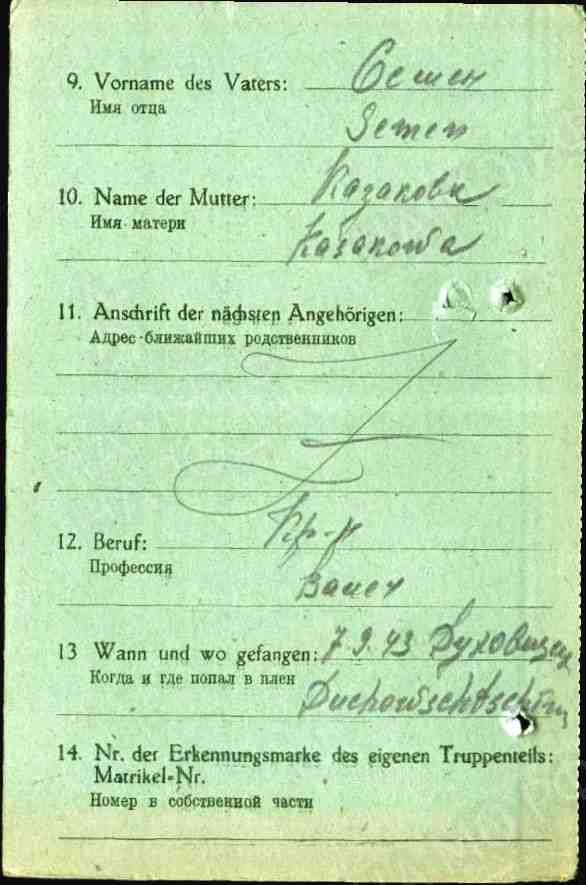 9. Vorname des Vaters: Семен
Имя отца
Semen
10. Name der Mutter: Казакова
Имя матери
Kasakowa
11. Anschrift der nächsten Angehörigen:
Адрес ближайших родственников
12. Beruf: Кр-н
Профессия
Bauer
13 Wann und wo gefangen: 7.9.43
Когда и где попал в плен
Duchowschtschina
14. Nr. der Erkennungsmarke des eigenen Truppenteils:
Matrikel-Nr.
Номер в собственной части